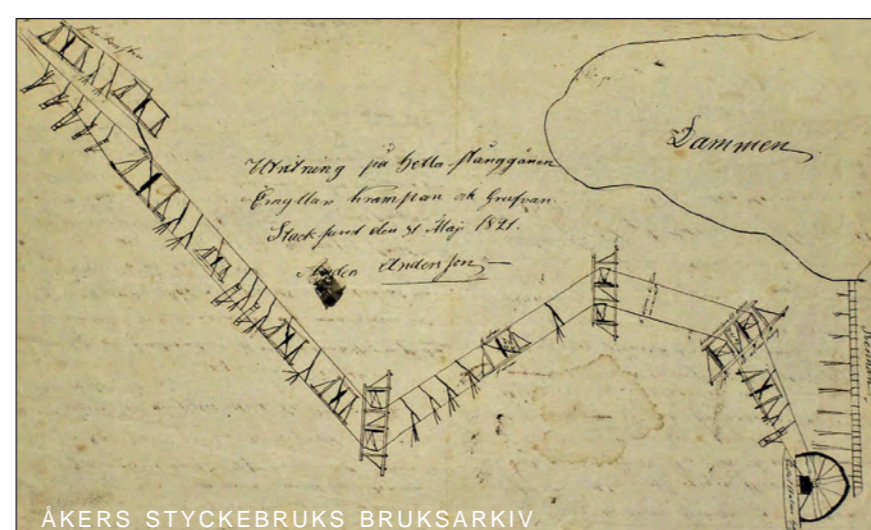 Dammen
Utritning på hella stånggången
Emyllan Kramstan och Grufvan.
Stacksund den 31 Maji 1821.
Anders Andersson
ÅKERS STYCKEBRUKS BRUKSARKIV